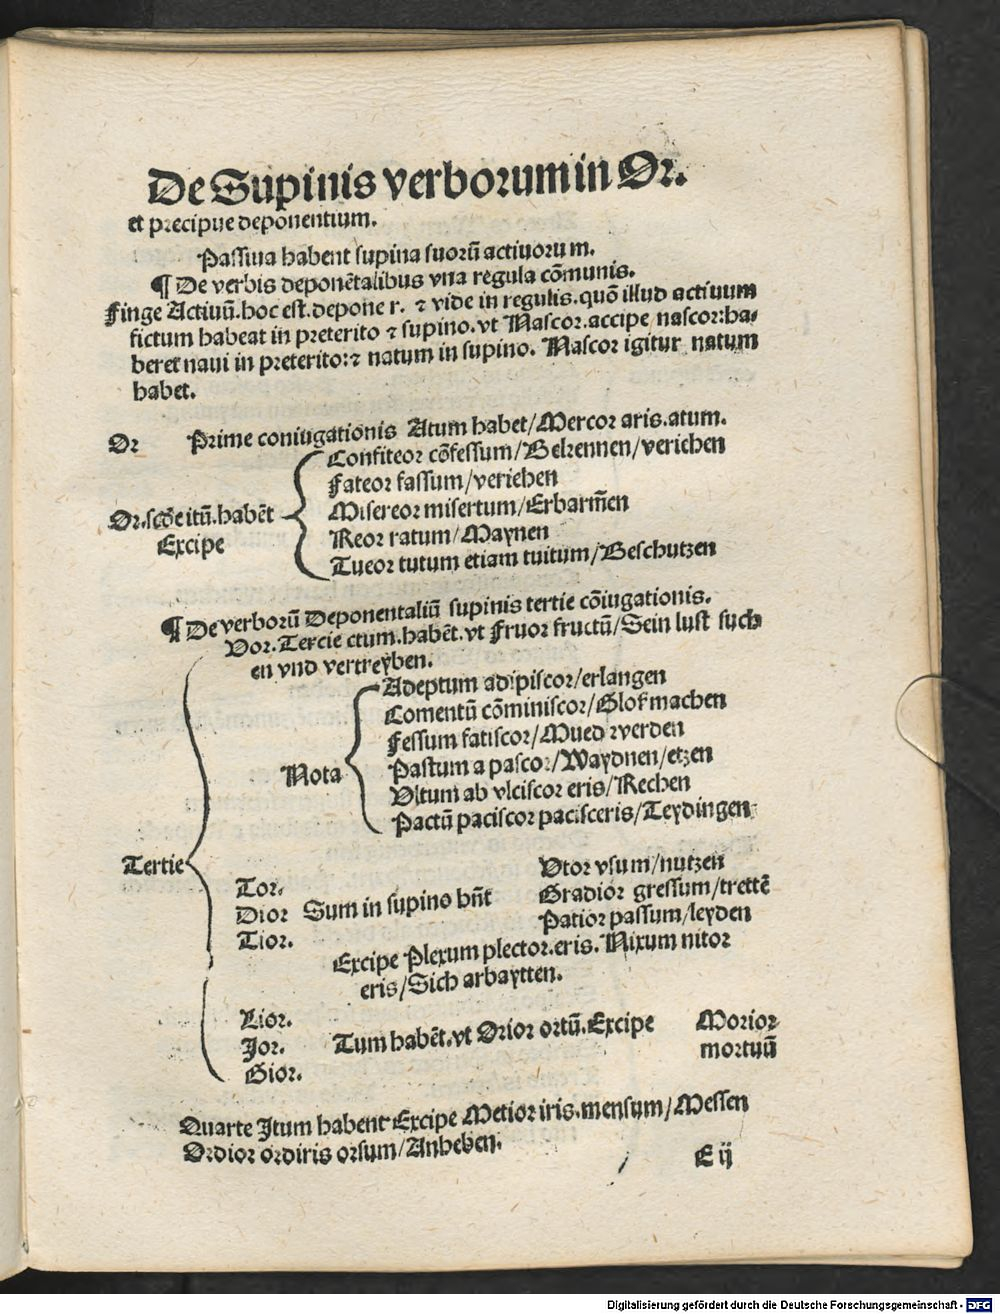 De Supinis verborum in Or.
et precipue deponentium.
Passiua habent supina suorū actiuorum.
¶ De verbis deponētalibus vna regula cōmunis.
Finge Actiuū.hoc est.depone r. ⁊ vide in regulis.quō illud actiuum
fictum habeat in preterito ⁊ supino.vt Nascor.accipe nascor:ha-
beret naui in preterito:⁊ natum in supino. Nascor igitur natum
habet.
Or Prime coniugationis Atum habet/Mercor aris.atum.
Confiteor cōfessum/Bekennen/veriehen
Fateor fassum/veriehen
Or.scōe itū.habēt Misereor misertum/Erbarm̄en
Excipe Reor ratum/Maynen
Tueor tutum etiam tuitum/Beschutzen
¶ De verborū Deponentaliū supinis tertie cōiugationis.
Vor.Tercie ctum.habēt.vt Fruor fructū/Sein lust such
en vnd vertreyben.
Adeptum adipiscor/erlangen
Comentū cōminiscor/Glos machen
Fessum fatiscor/Mued werden
Nota Pastum a pascor/Waydnen/etzen
Vltum ab vlciscor eris/Rechen
Pactū paciscor pacisceris/Teydingen
Tertie
Vtor vsum/nutzen
Tor.
Dior Sum in supino hn̄t Gradior gressum/trettē
Tior. Patior passum/leyden
Excipe Plexum plector.eris. Nixum nitor
eris/Sich arbaytten.
Lior.
Jor. Tum habēt.vt Orior ortū.Excipe Morior
Gior. mortuū
Quarte Itum habent Excipe Metior iris.mensum/Messen
Ordior ordiris orsum/Anheben.
E ij
Digitalisierung gefördert durch die Deutsche Forschungsgemeinschaft - DFG